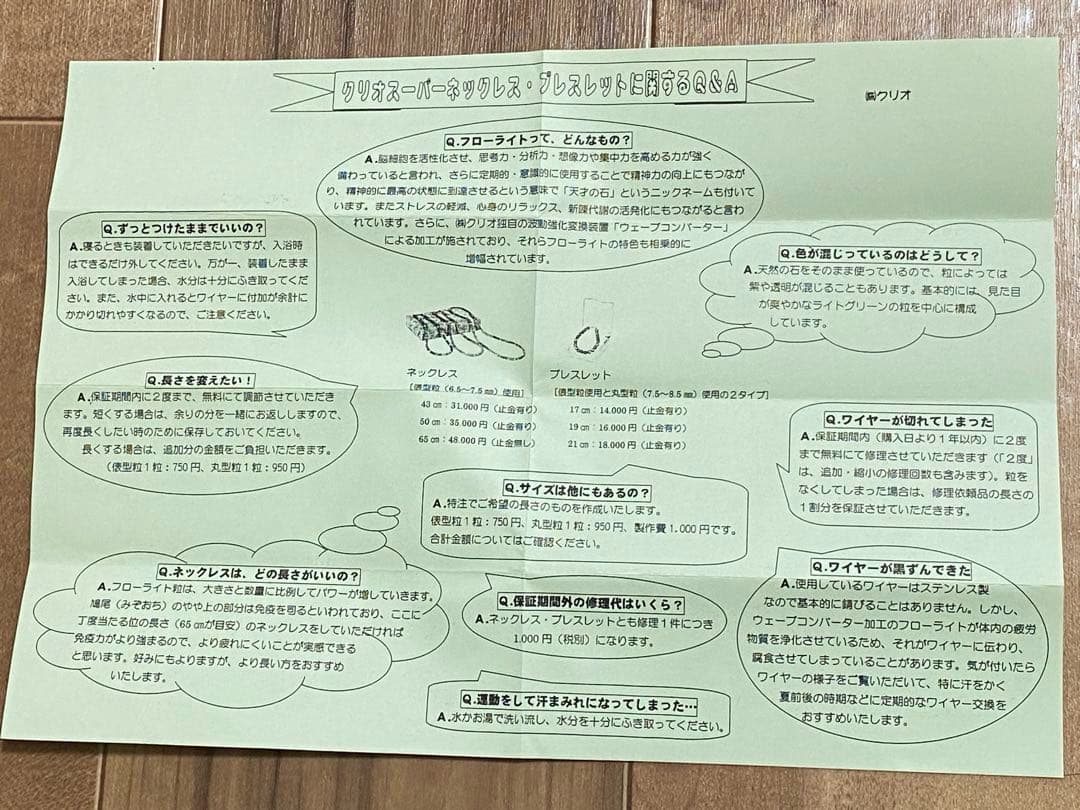 クリオスーパーネックレス・ブレスレットに関するQ&A
㈱クリオ
Q.フローライトって、どんなもの？
A.脳細胞を活性化させ、思考力・分析力・想像力や集中力を高める力が強く
備わっていると言われ、さらに定期的・意識的に使用することで精神力の向上にもつなが
り、精神的に最高の状態に到達させるという意味で「天才の石」というニックネームも付いて
います。またストレスの軽減、心身のリラックス、新陳代謝の活発化にもつながると言わ
れています。さらに、㈱クリオ独自の波動強化変換装置「ウェーブコンバーター」
による加工が施されており、それらフローライトの特色も相乗的に
増幅されています。
Q.ずっとつけたままでいいの？
A.寝るときも装着していただきたいですが、入浴時
はできるだけ外してください。万が一、装着したまま
入浴してしまった場合、水分は十分にふき取ってくだ
さい。また、水中に入れるとワイヤーに付加が余計に
かかり切れやすくなるので、ご注意ください。
Q.色が混じっているのはどうして？
A.天然の石をそのまま使っているので、粒によっては
紫や透明が混じることもあります。基本的には、見た目
が爽やかなライトグリーンの粒を中心に構成
しています。
ネックレス
[俵型粒（6.5～7.5㎜）使用]
43㎝：31.000円（止金有り）
50㎝：35.000円（止金有り）
65㎝：48.000円（止金無し）
ブレスレット
[俵型粒使用と丸型粒（7.5～8.5㎜）使用の2タイプ]
17㎝：14.000円（止金有り）
19㎝：16.000円（止金有り）
21㎝：18.000円（止金有り）
Q.長さを変えたい！
A.保証期間内に2度まで、無料にて調節させていただき
ます。短くする場合は、余りの分を一緒にお返ししますので、
再度長くしたい時のために保存しておいてください。
長くする場合は、追加分の金額をご負担いただきます。
（俵型粒1粒：750円、丸型粒1粒：950円）
Q.ワイヤーが切れてしまった
A.保証期間内（購入日より1年以内）に2度
まで無料にて修理させていただきます（「2度」
は、追加・縮小の修理回数も含みます）。粒を
なくしてしまった場合は、修理依頼品の長さの
1割分を保証させていただきます。
Q.サイズは他にもあるの？
A.特注でご希望の長さのものを作成いたします。
俵型粒1粒：750円、丸型粒1粒：950円、製作費1.000円です。
合計金額についてはご確認ください。
Q.ネックレスは、どの長さがいいの？
A.フローライト粒は、大きさと数量に比例してパワーが増していきます。
鳩尾（みぞおち）のやや上の部分は免疫を司るといわれており、ここに
丁度当たる位の長さ（65㎝が目安）のネックレスをしていただければ
免疫力がより強まるので、より疲れにくいことが実感できる
と思います。好みにもよりますが、より長い方をおすすめ
いたします。
Q.保証期間外の修理代はいくら？
A.ネックレス・ブレスレットとも修理1件につき
1.000円（税別）になります。
Q.運動をして汗まみれになってしまった…
A.水かお湯で洗い流し、水分を十分にふき取ってください。
Q.ワイヤーが黒ずんできた
A.使用しているワイヤーはステンレス製
なので基本的に錆びることはありません。しかし、
ウェーブコンバーター加工のフローライトが体内の疲労
物質を浄化させているため、それがワイヤーに伝わり、
腐食させてしまっていることがあります。気が付いたら
ワイヤーの様子をご覧いただいて、特に汗をかく
夏前後の時期などに定期的なワイヤー交換を
おすすめいたします。